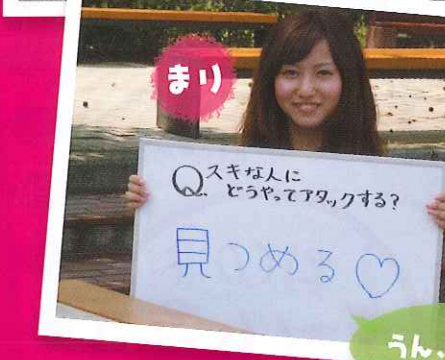 まり
Q.スキな人に
どうやってアタックする?
見つめる♡
うん、